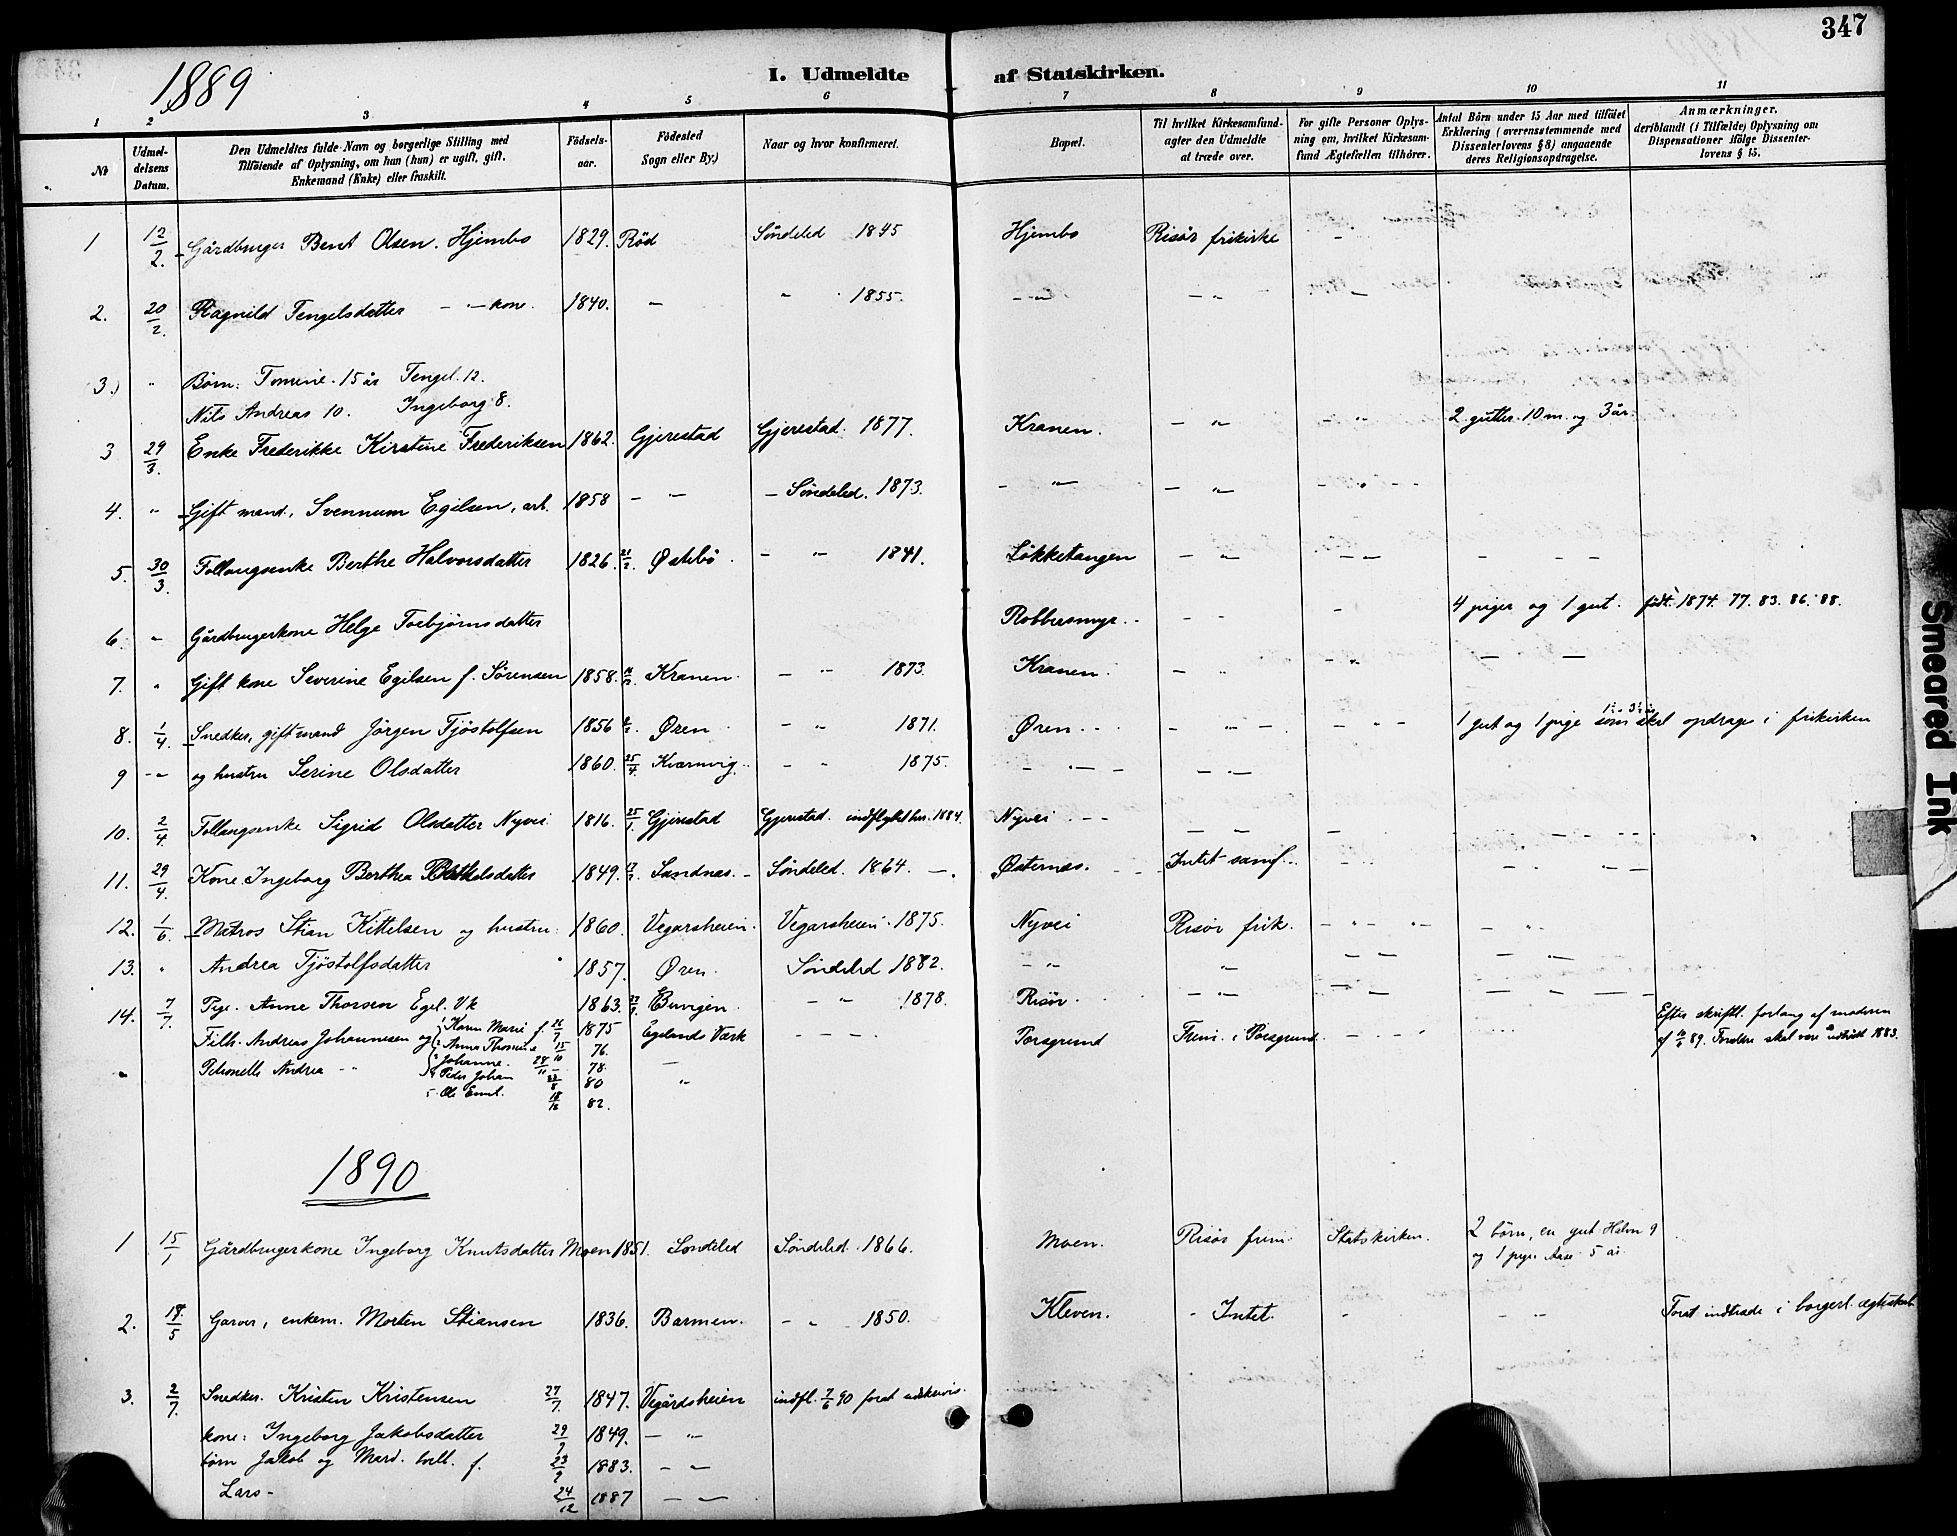 347
1889
I. Udmeldte af Statskirken.
1 2 3 4 5 6 7 8 9 10 11
Nr
Udmel-
delsens
Datum.
Den Udmeldtes fulde Navn og borgerlige Stilling med
Tilføiende af Oplysning, om han (hun) er ugift, gift.
Enkemand (Enke) eller fraskilt.
Fødsels-
aar.
Fødested
Sogn eller By.)
Naar og hvor konfirmeret.
Bopæl.
Til hvilket Kirkesamfund-
agter den Udmeldte
at træde over.
For gifte Personer Oplys-
ning om, hvilket Kirkesam-
fund Ægtefællen tilhører.
Antal Børn under 15 Aar med tilføiet
Erklæring (overensstemmende med
Dissenterlovens § 8) angaaende
deres Religionsopdragelse.
Anmærkninger.
deriblandt (i Tilfælde) Oplysning om
Dispensationer ifølge Dissenter-
lovens § 15.
1 12/2. Gårdbruger Bent Olsen. Hjembo 1829. Röd Søndeled 1845 Hjembo Risör frikirke -
2. 20/2. Ragnild Tengelsdatter - - kone. 1840. - " 1855. - " - - " - -
3.) " Børn: Tomine. 15 år Tengel. 12.
Nils Andreas 10. Ingeborg 8.
3 29/3. Enke Frederikke Kirstine Frederiksen 1862. Gjerestad Gjerestad. 1877. Kranen. - " - - " 2 gutter. 10 m. og 3 år.
4. " Gift mand, Svennum Egilsen, arb. 1858 - - - Søndeled. 1873. - " - - " - - " - -
5. 30/3. Follaugsenke Berthe Halvorsdatter 1826. 21/2. Østebö. - " 1841. Lökketangen - " - - - - - -
6. " Gårdbrugerkone Helge Torbjørnsdatter Robbersmyr. - - - 4 piger og 1 gut. født. 1874. 77. 83. 86. 88.
7. " Gift kone Severine Egilsen f. Sørensen 1858. Kranen. - " 1873. Kranen. - " - " - -
8. 1/4. Snedker, gift mand Jörgen Tjöstolfsen 1856 Øren - " 1871. Øren - - " - - " - 1 gut og 1 pige som skal opdrages i frikirken
9 - " og hustru Serine Olsdatter 1860. 25/4. Kvarnvig. - " 1875. - " - - - " -
10. 2/4. Follaugsenke Sigrid Olsdatter Nyvei 1816. 25/1. Gjerestad Gjerestad. indflyttet her. 1884. Nyvei - - - - - -
11. 29/4. Kone. Ingeborg Berthea 1849. Sandnæs. - Søndeled. 1864. - Østernæs. - Intet samf. - - - - -
12. 1/6. Matros Stian Kittelsen og hustru 1860. Vegarsheien. Vegarsheien 1875. Nyvei Risør frik. - " - " - - "
13. " Andrea Tjöstolfsdatter 1857. Øren. Søndeled 1882. - " " - - - -
14. 7/7. Pige. Anne Thorsen Egel. Vk 1863. Buvigen. - " 1878. Risör. - " - - - - -
Filh. Andreas Johannesen og 1 Karen Marie f. 26/7 1875 Egelands Værk - - - Porsgrund Frem. i Porsgrund - - - Efter skriftl. forlang af moderen
2 Anna Thomine 15/10 76. af 89. Foreldre skal være udtrådt 1883.
" Petronelle Andrea - " 3 Johanne. 28/11 - 78. -
4 Peder Johan 22/8 80 "
5 Ole Emil. 18/12 82.
1890
1 15/1 Gårdbrugerkone Ingeborg Knutsdatter Moen 1851. Søndeled Søndeled. 1866. Moen. Risör frem. Statskirken. 2 børn, en gut Halvor 9
og 1 pige Aase 5 år
2. 18/5 Garver, enkem. Morten Stiansen 1836. Barmen. - " 1850. Kleven. - Intet. - - - Forat indtræde i borgerl. ægteskab
3. 2/7. Snedker. Kristen Kristensen 27/7. 1847. Vegårdsheien indfl. 7/6 90 forat
kone: Ingeborg Jakobsdatter 29/9 1849. - "
børn Jakob og Mard. tvill. f. 23/2 1883. - "
Lars - 24/12 1887 - "
Smeared Ink